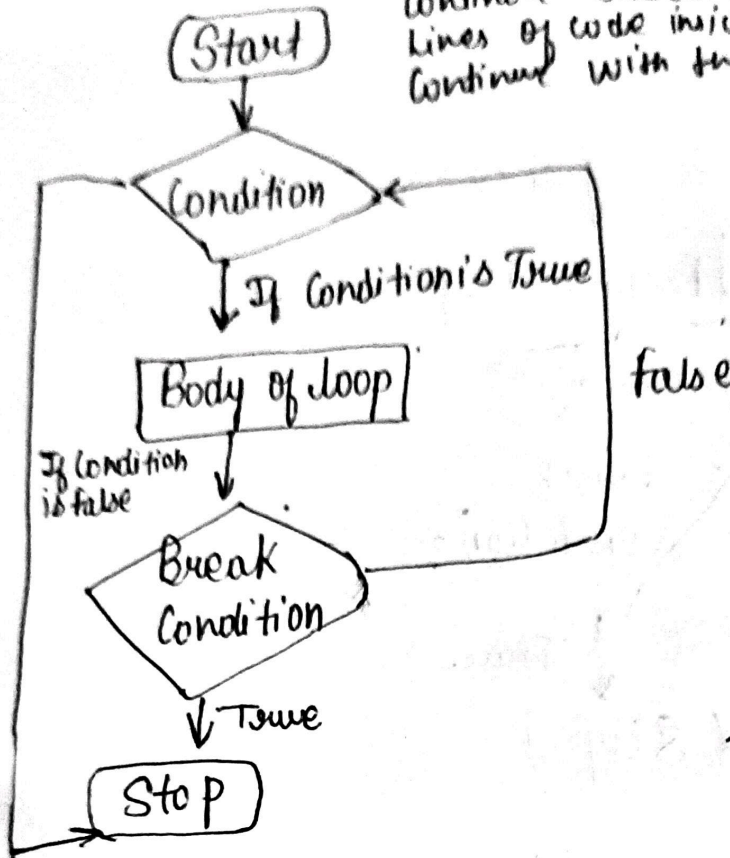 Start
Lines of code
Continue with
Condition
If Condition is True
Body of loop
false
If Condition
is false
Break
Condition
True
Stop